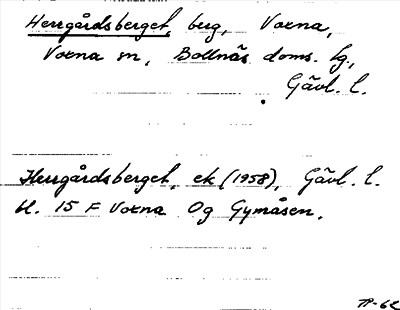 Herrgårdsberget, berg, Voxna,
Voxna sn, Bollnäs doms. lg.,
Gävl. l.
Herrgårdsberget, ek (1958), Gävl. l.
bl. 15 F Voxna Og Gymåsen.